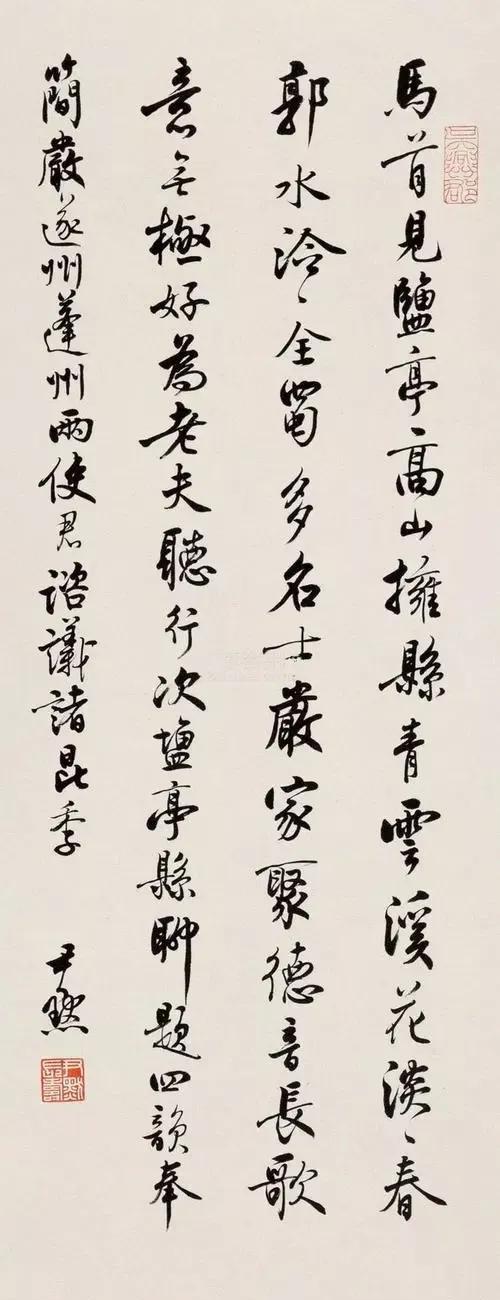 吳興郡
馬首見鹽亭高山擁縣青雲溪花淡〻春
郭水泠〻全蜀多名士嚴家聚德音長歌
意無極好為老夫聽行次塩亭縣聊題四韻奉
簡嚴遂州蓬州兩使君諮議諸昆季
尹默